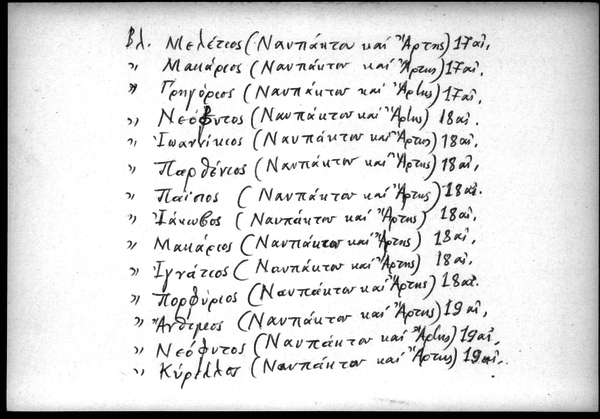 Βλ. Μελέτιος (Ναυπάκτου καί Ἄρτης) 17αἰ.
" Μακάριος (Ναυπάκτου καί Ἄρτης) 17αἰ.
" Γρηγόριος (Ναυπάκτου καί Ἄρτης) 17αἰ.
" Νεόφυτος (Ναυπάκτου καί Ἄρτης) 18αἰ.
" Ἰωαννίκιος (Ναυπάκτου καί Ἄρτης) 18αἰ.
" Παρθένιος (Ναυπάκτου καί Ἄρτης) 18αἰ.
" Παΐσιος (Ναυπάκτου καί Ἄρτης) 18αἰ.
" Ἰάκωβος (Ναυπάκτου καί Ἄρτης) 18αἰ.
" Μακάριος (Ναυπάκτου καί Ἄρτης) 18αἰ.
" Ἰγνάτιος (Ναυπάκτου καί Ἄρτης) 18αἰ.
" Πορφύριος (Ναυπάκτου καί Ἄρτης) 18αἰ.
" Ἄνθιμος (Ναυπάκτου καί Ἄρτης) 19αἰ.
" Νεόφυτος (Ναυπάκτου καί Ἄρτης) 19αἰ.
" Κύριλλος (Ναυπάκτου καί Ἄρτης) 19αἰ.